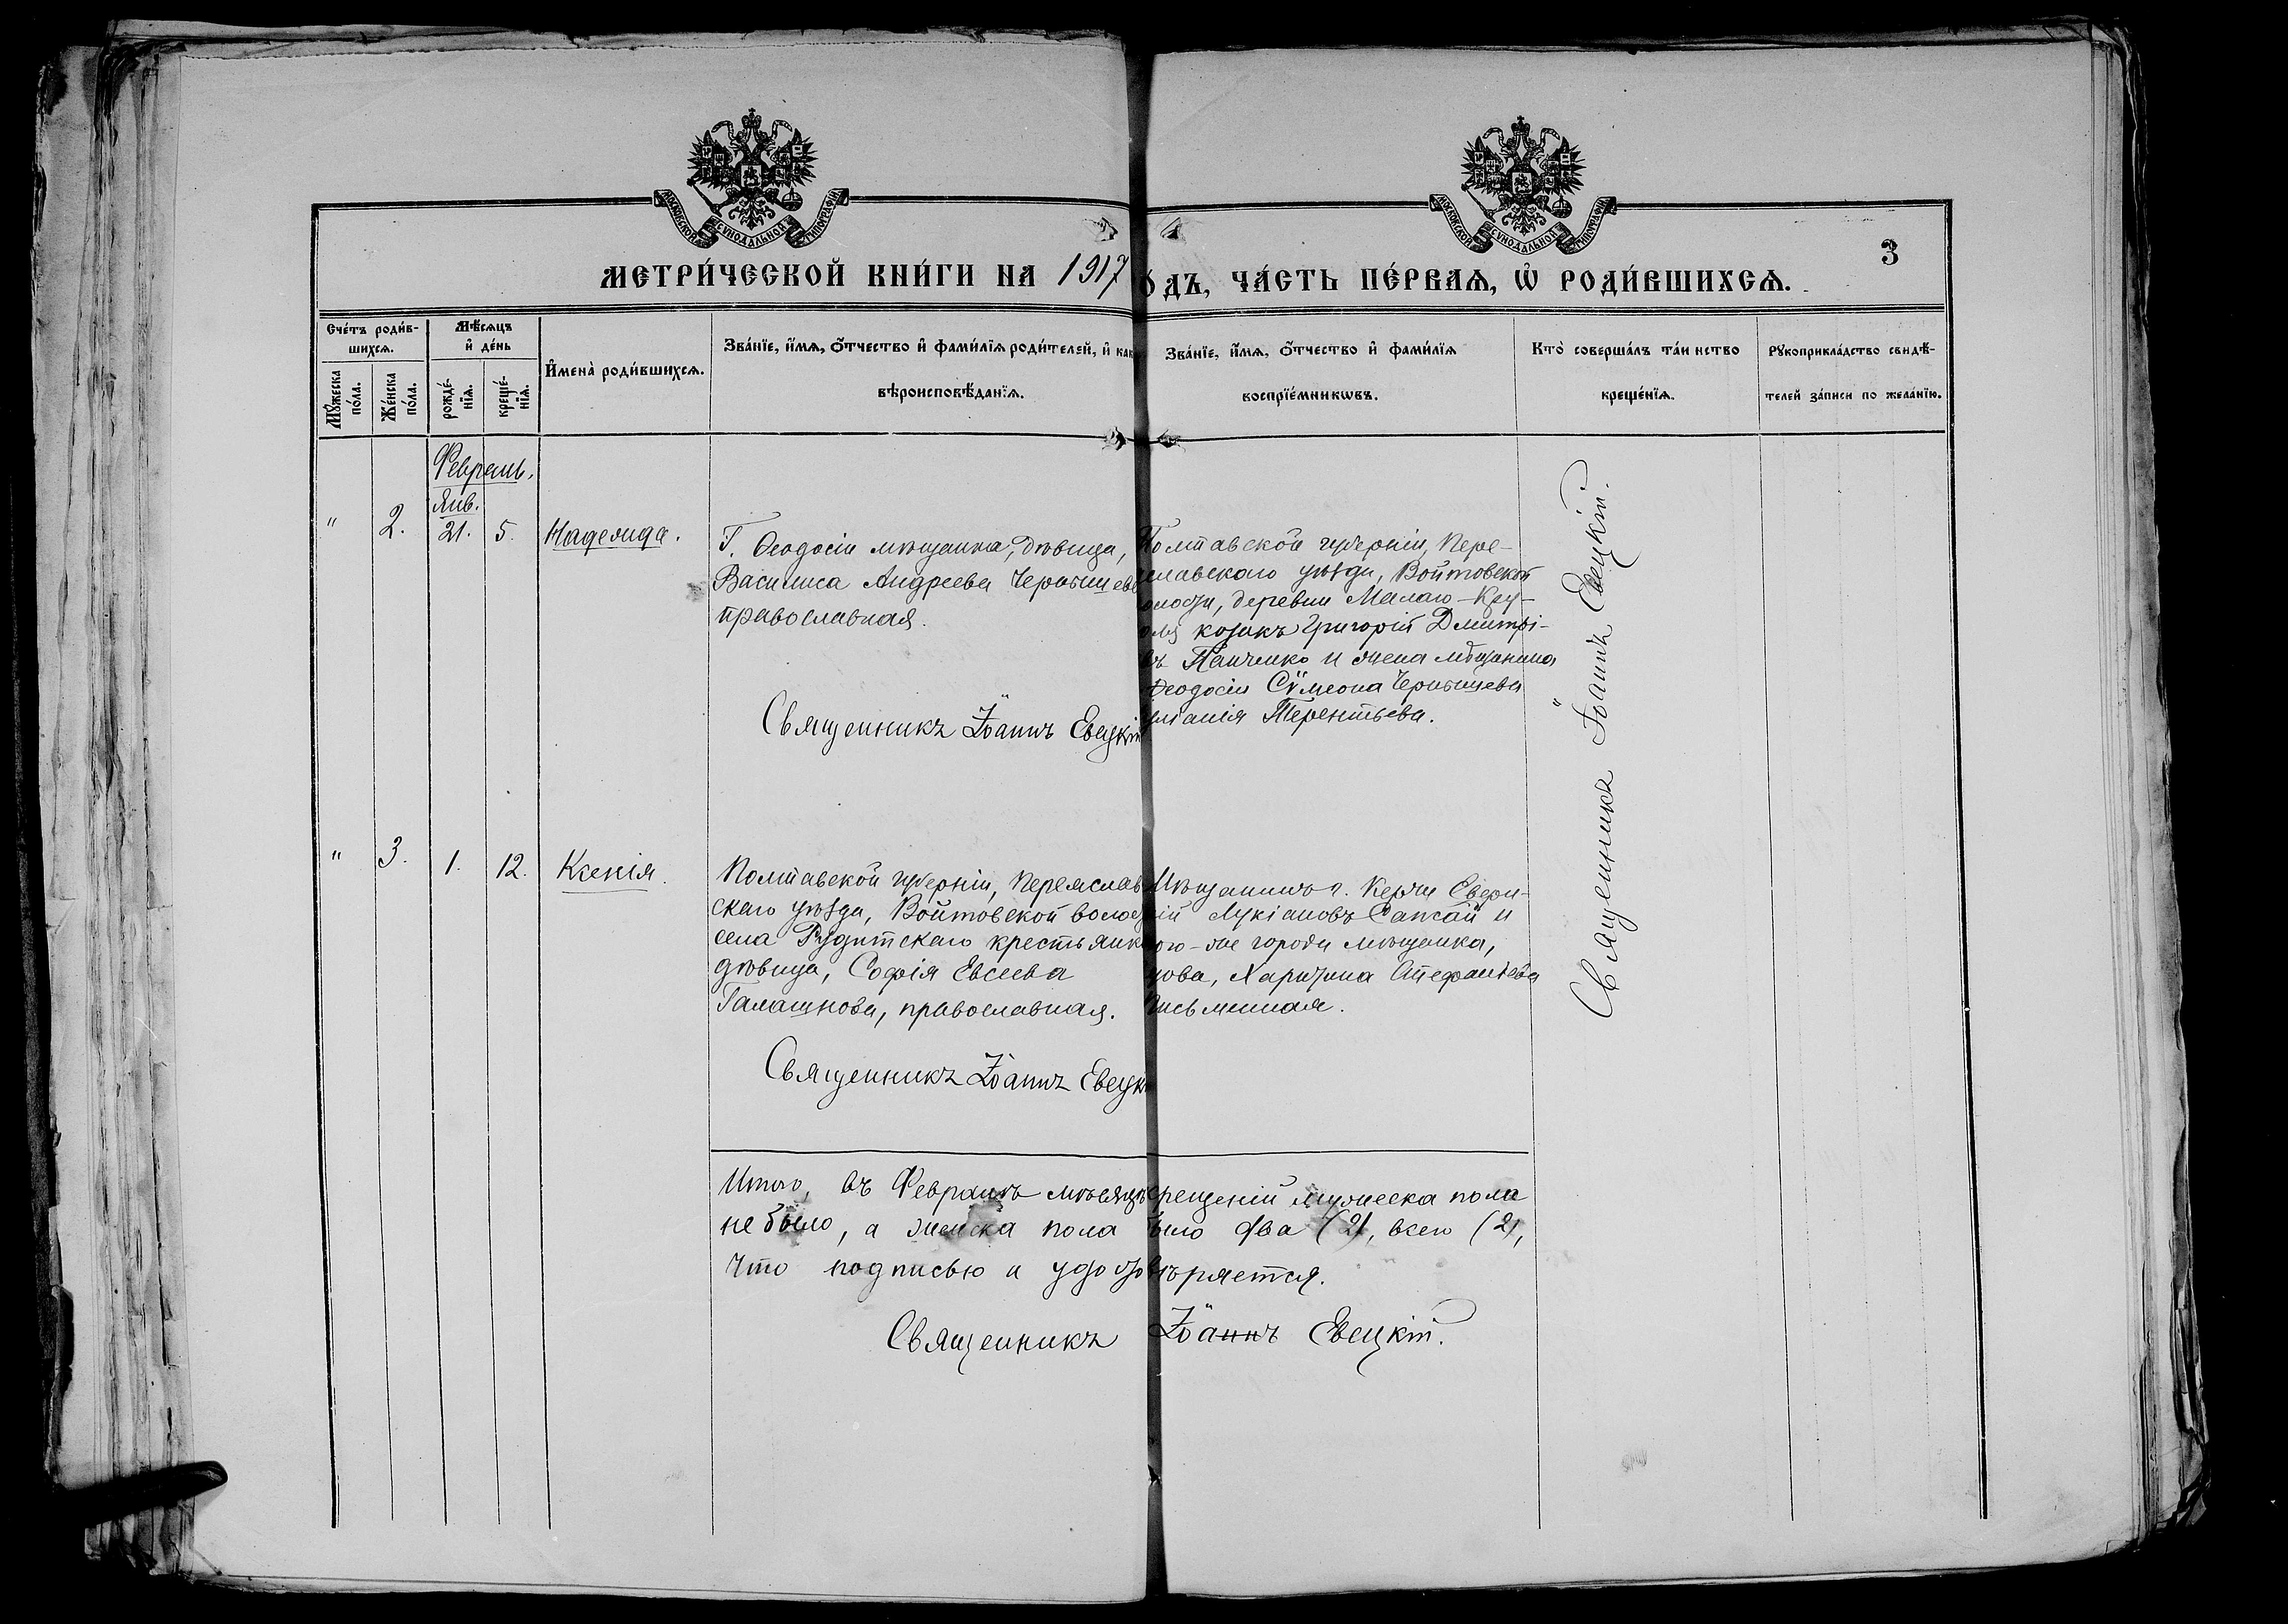 МОСКОВСКОЙ СУНОДАЛЬНОЙ ТИПОГРАФІИ
МОСКОВСКОЙ СУНОДАЛЬНОЙ ТИПОГРАФІИ
3
МЕТРИ́ЧЕСКОЙ КНИ́ГИ НА 1917
ДЪ, ЧА́СТЬ ПЕ́РВАѦ, Ѡ҆ РОДИ́ВШИХСѦ.
Сче́тъ роди́в-
шихсѧ.
Мѣ́сѧцъ
и҆ де́нь
Мꙋ́жеска
по́ла.
Же́нска
по́ла.
рожде́-
нїѧ.
креще́-
нїѧ.
И҆мена̀ роди́вшихсѧ.
Зва́нїе, и҆́мѧ, ѻ҆́тчество и҆ фами́лїѧ роди́телей, и҆ как
вѣроисповѣ́данїѧ.
Зва́нїе, и҆́мѧ, ѻ҆́тчество и҆ фами́лїѧ
воспрїе́мникѡвъ.
Кто̀ соверша́лъ та́инство
креще́нїѧ.
Рꙋкоприкла́дство свидѣ́-
телей за́писи по жела́нїю.
Февраль.
Янв.
" 2. 21. 5. Надежда.
Г. Ѳеодосіи мѣщанка, дѣвица,
Василиса Андреева Чернышева
православная.
Священникъ Іоаннъ Евецкій
Полтавской губерніи, Пере-
славскаго уѣзда, Войтовской
волости, деревни Малаго-Кру-
козакъ Григорій Дмитрі-
въ Панченко и жена мѣщанина
Ѳеодосіи Сѵмеона Чернышева
Терентьева.
Священникъ Іоаннъ Евецкій.
" 3. 1. 12. Ксенія.
Полтавской губерніи, Переяслав
скаго уѣзда, Войтовской волос
села крестьянка
дѣвица, Софія Евсеева
Галашнова, православная.
Священникъ Іоаннъ Евецк
Мѣщанинъ г. Керчи
Лукіановъ Сапсай и
того-же города мѣщанка,
Харитина Стефанова
Письменная.
Итого, въ Февралѣ мѣсяцѣ крещеній мужеска пола
не было, а женска пола было два (2), всего (2),
что подписью и удостовѣряется.
Священникъ Іоаннъ Евецкій.